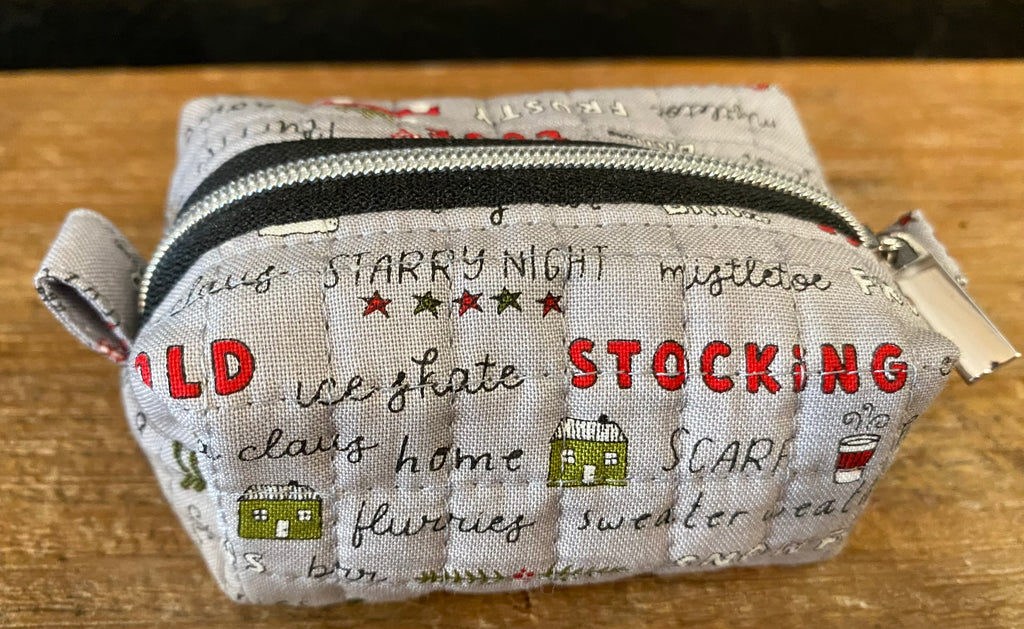 FROSTY
mistletoe
claus
STARRY NIGHT mistletoe
OLD ice skate STOCKiNG
claus home SCARF
flurries sweater weath
brr